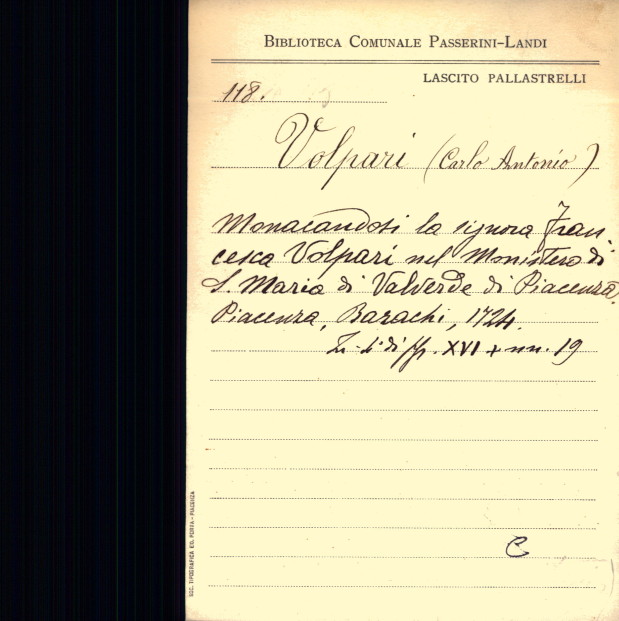 BIBLIOTECA COMUNALE PASSERINI-LANDI
LASCITO PALLASTRELLI
118.
Volpari (Carlo Antonio)
Monacandosi la signora Fran-
cesca Volpari nel Monistero di
S. Maria di Valverde di Piacenza.
Piacenza, Barachi, 1724.
di pp. XVI + nn. 19
C
SOC. TIPOGRAFICA ED. PORTA - PIACENZA